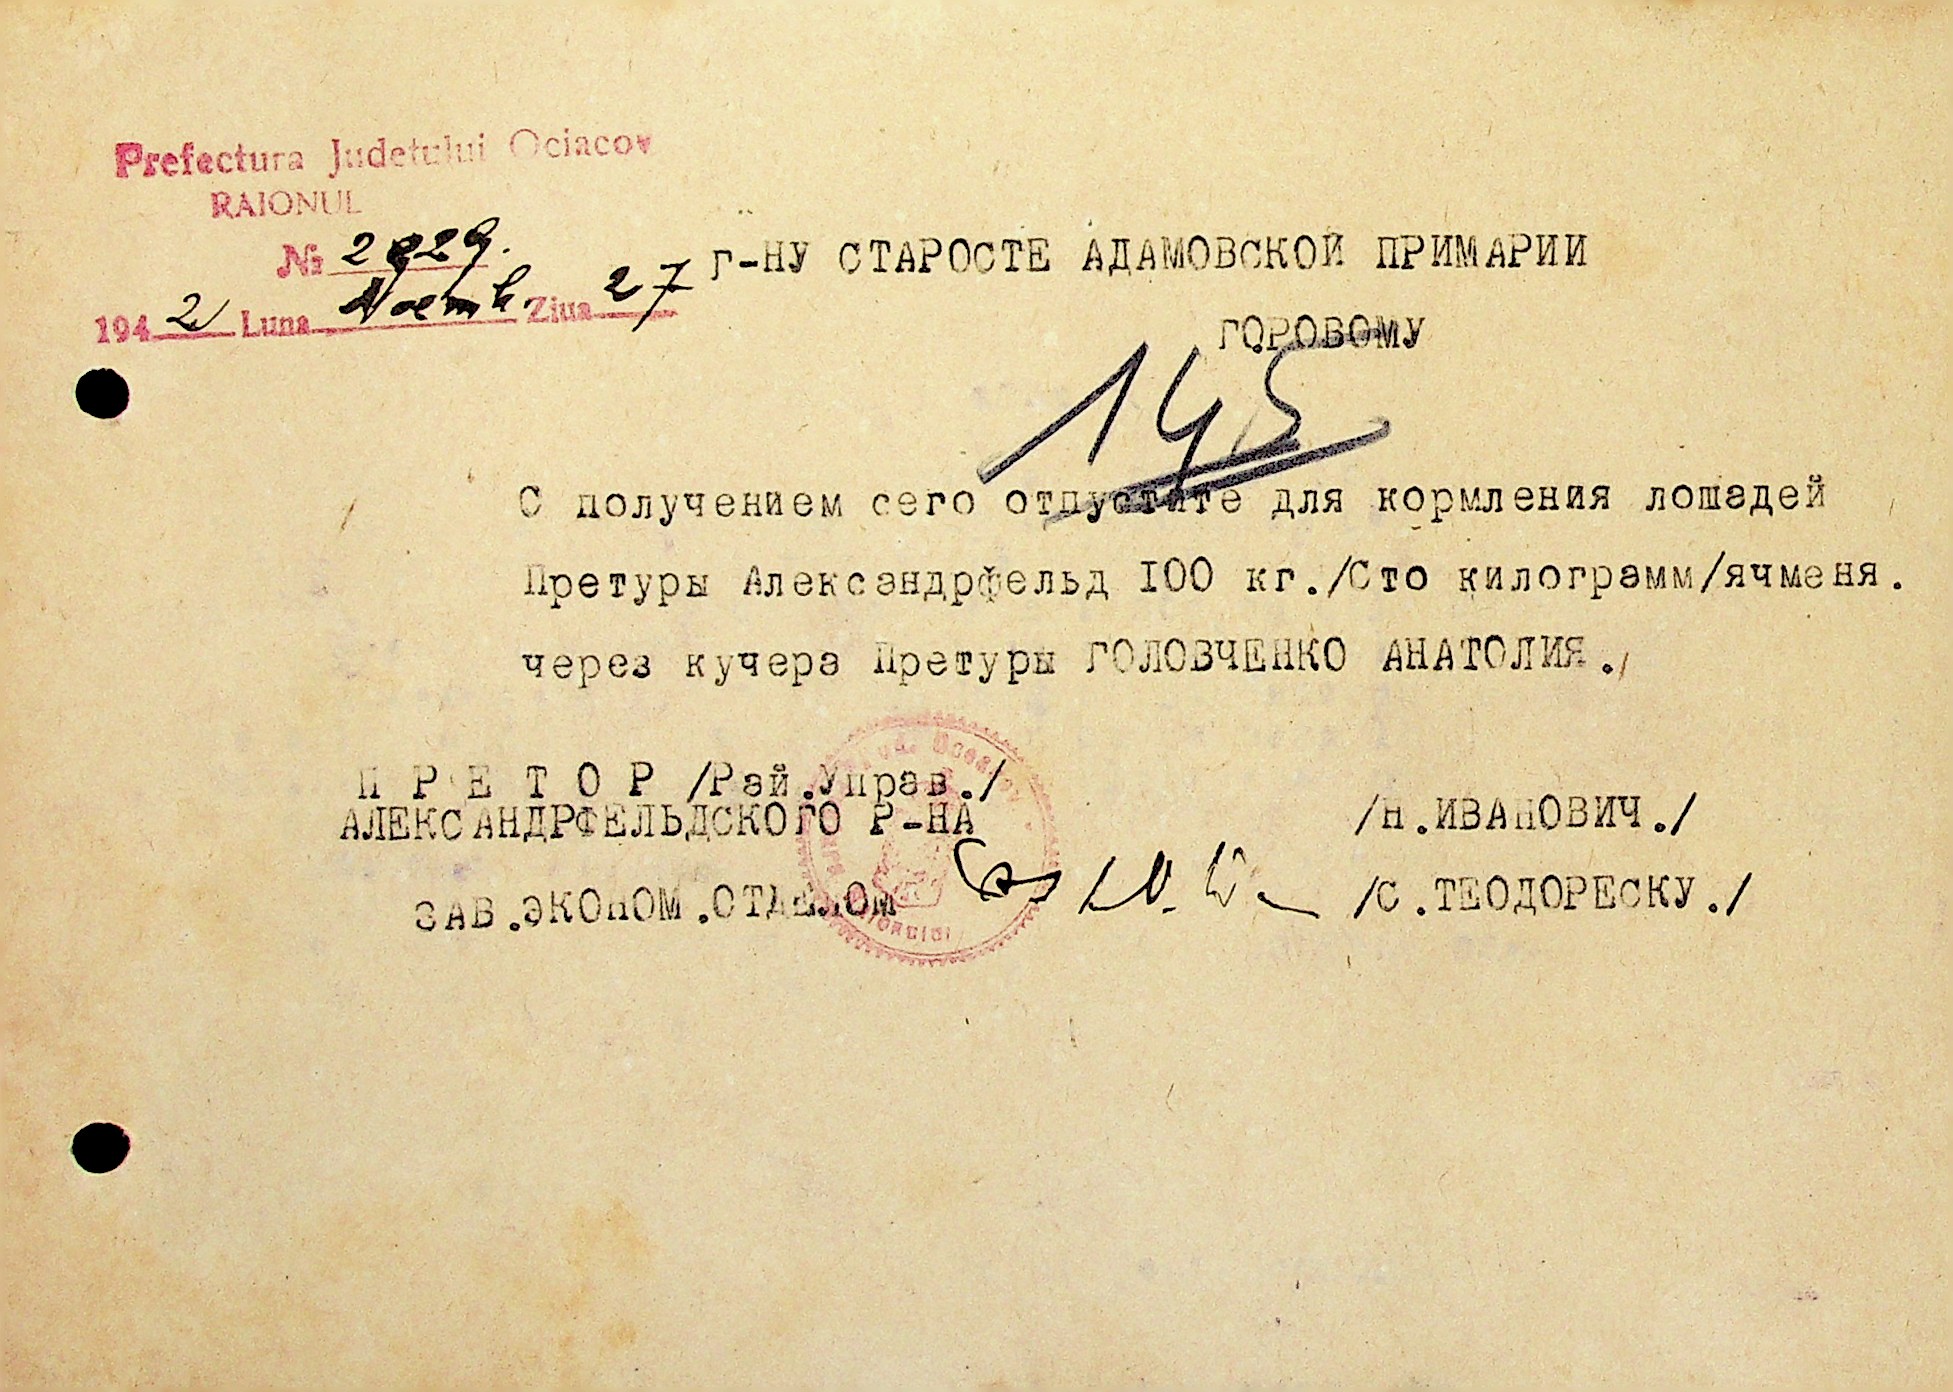 Prefectura Judetului Ociacov
RAIONUL
№ 2929.
1942 Luna Noemb Ziua 27
г-НУ СТАРОСТЕ АДАМОВСКОЙ ПРИМАРИИ
ГОРОВОМУ
145
С получением сего отпустите для кормления лошадей
Претуры Александрфельд I00 кг./Сто килограмм/ячменя.
через кучера Претуры ГОЛОВЧЕНКО АНАТОЛИЯ.
П Р Е Т О Р /Рай.Управ./
АЛЕКСАНДРФЕЛЬДСКОГО Р-НА
/Н.ИВАНОВИЧ./
ЗАВ.ЭКОНОМ.ОТДЕЛОМ
/С.ТЕОДОРЕСКУ./